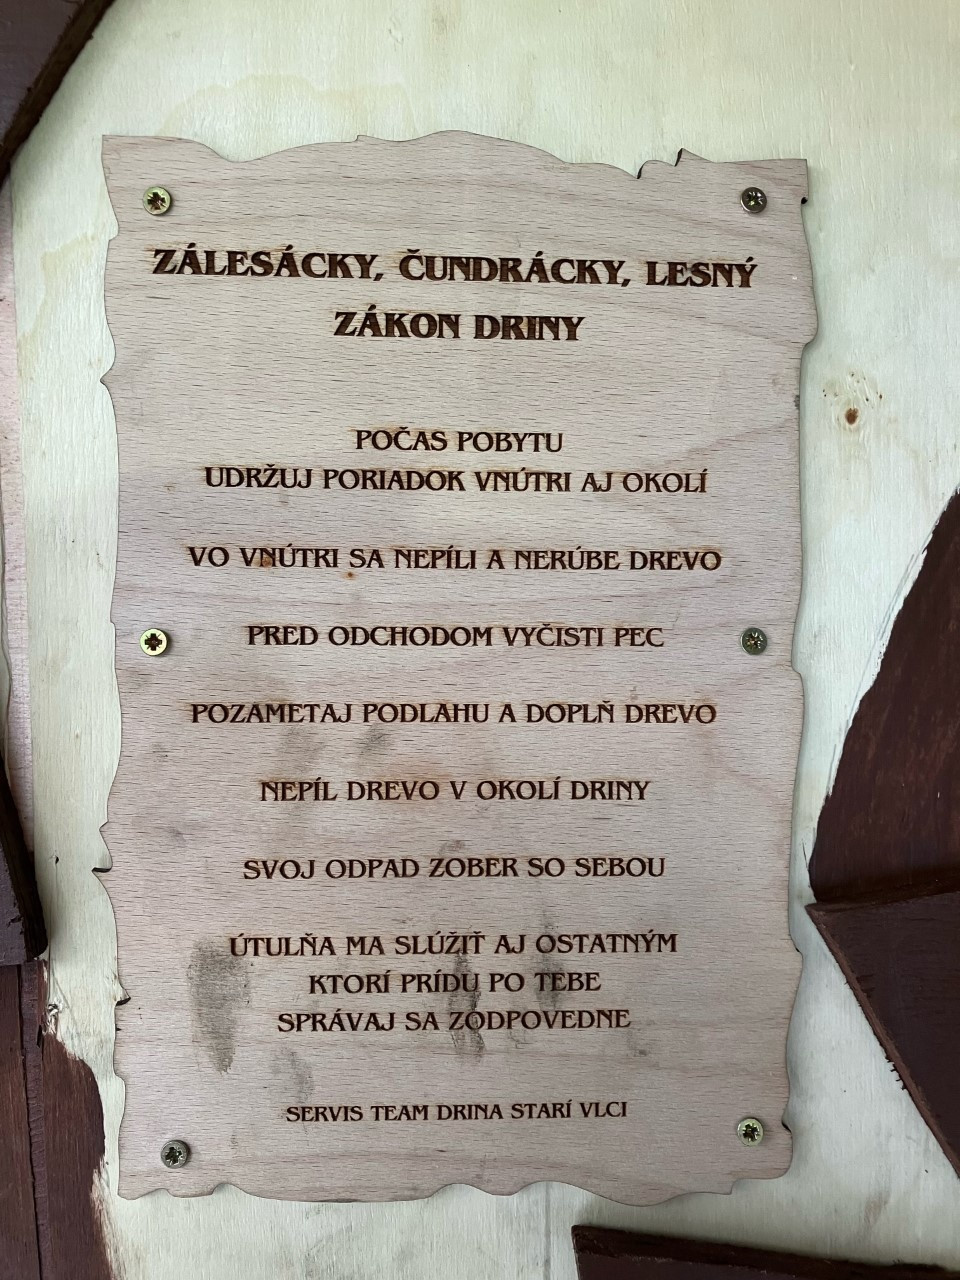 ZÁLESÁCKY, ČUNDRÁCKY, LESNÝ
ZÁKON DRINY
POČAS POBYTU
UDRŽUJ PORIADOK VNÚTRI AJ OKOLÍ
VO VNÚTRI SA NEPÍLI A NERÚBE DREVO
PRED ODCHODOM VYČISTI PEC
POZAMETAJ PODLAHU A DOPLŇ DREVO
NEPÍL DREVO V OKOLÍ DRINY
SVOJ ODPAD ZOBER SO SEBOU
ÚTULŇA MA SLÚŽIŤ AJ OSTATNÝM
KTORÍ PRÍDU PO TEBE
SPRÁVAJ SA ZODPOVEDNE
SERVIS TEAM DRINA STARÍ VLCI